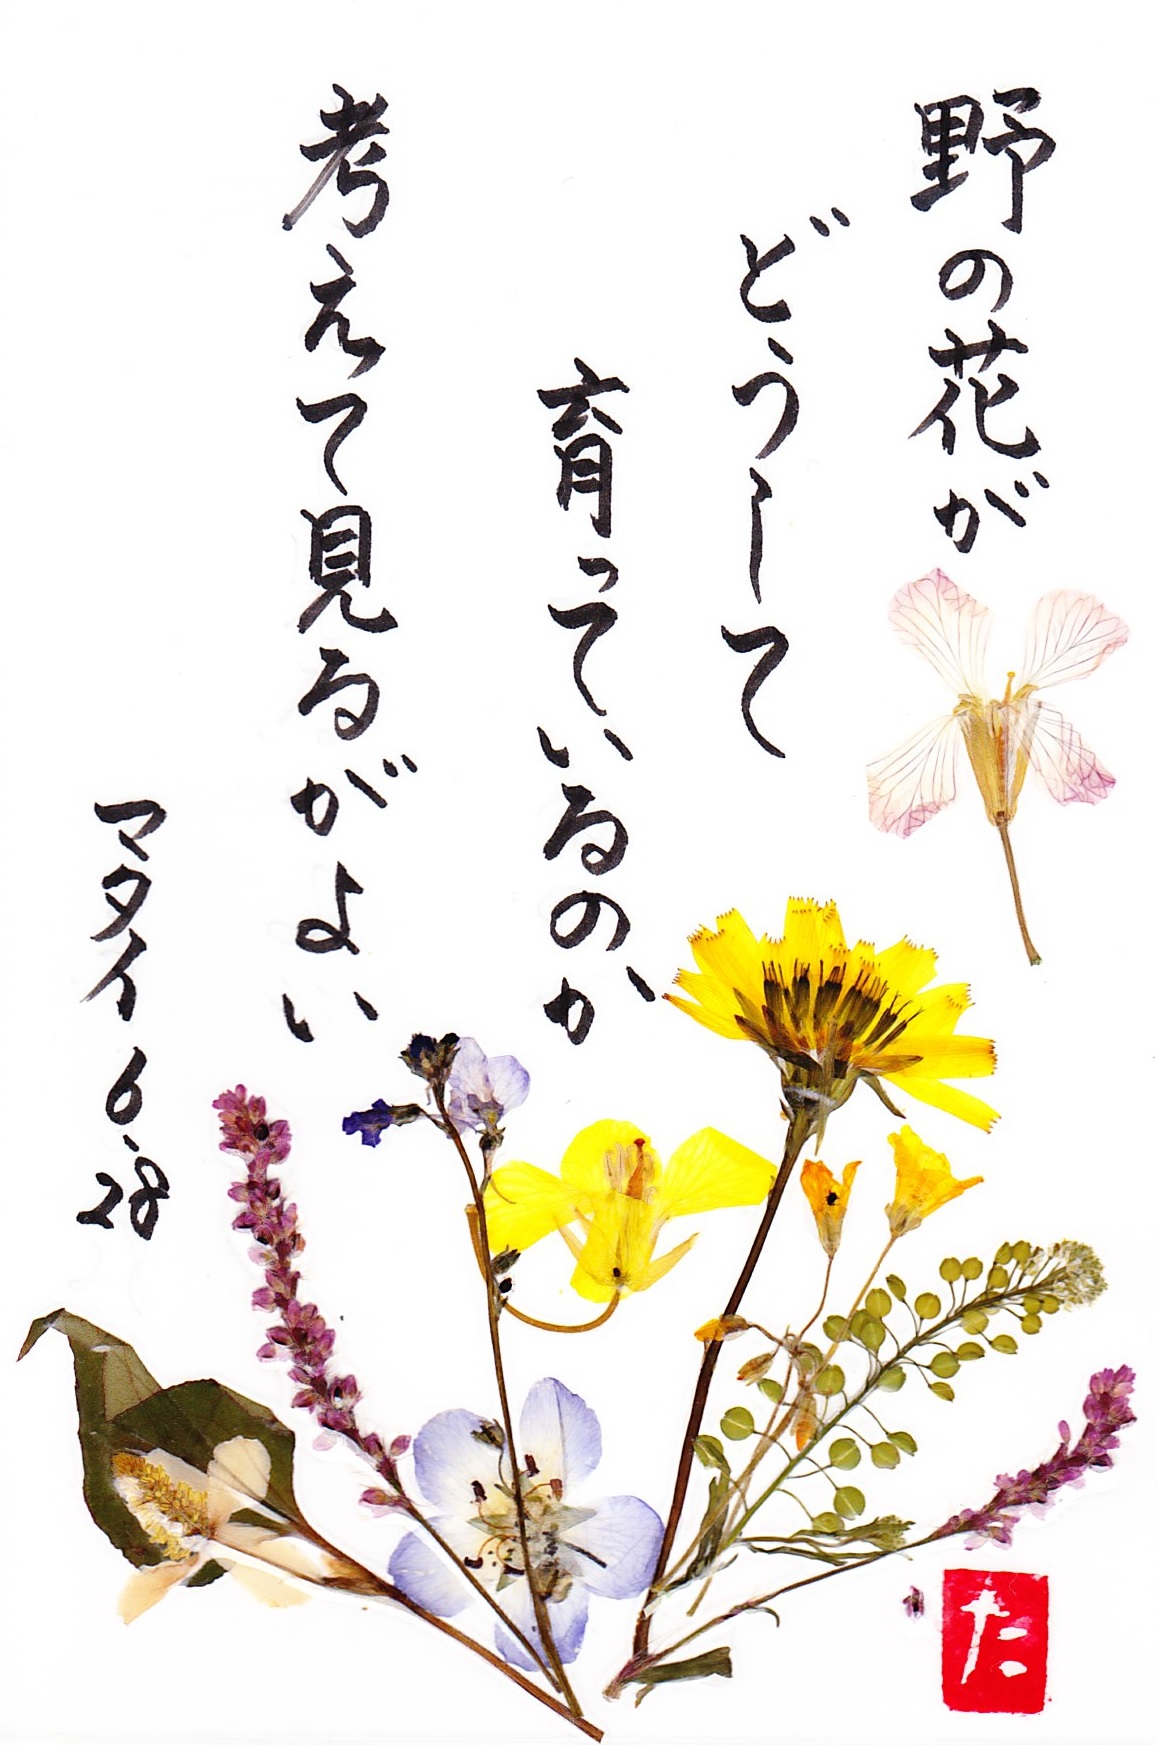 野の花が
どうして
育っているのか、
考えて見るがよい
マタイ6.28
た